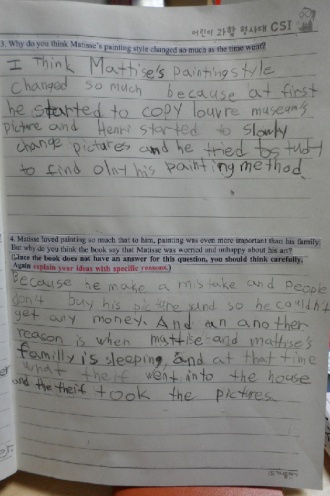 어린이 과학 형사대 CSI
3. Why do you think Matisse's painting style changed so much as the time went?
I think Mattise's painting style
changed so much because at first
he started to copy louvre museum's
picture and Henri started to slowly
change pictures and he tried to study
to find olnt his painting method.
4. Matisse loved painting so much that to him, painting was even more important than his family.
But why do you think the book say that Matisse was worried and unhappy about his art?
(Since the book does not have an answer for this question, you should think carefully.
Again explain your ideas with specific reasons.)
Because he make a mistake and people
don't buy his picture and so he couldn't
get any money. And an another
reason is when mattise and mattise's
familly is sleeping, and at that time
what theif went into the house
and the theif took the pictures.